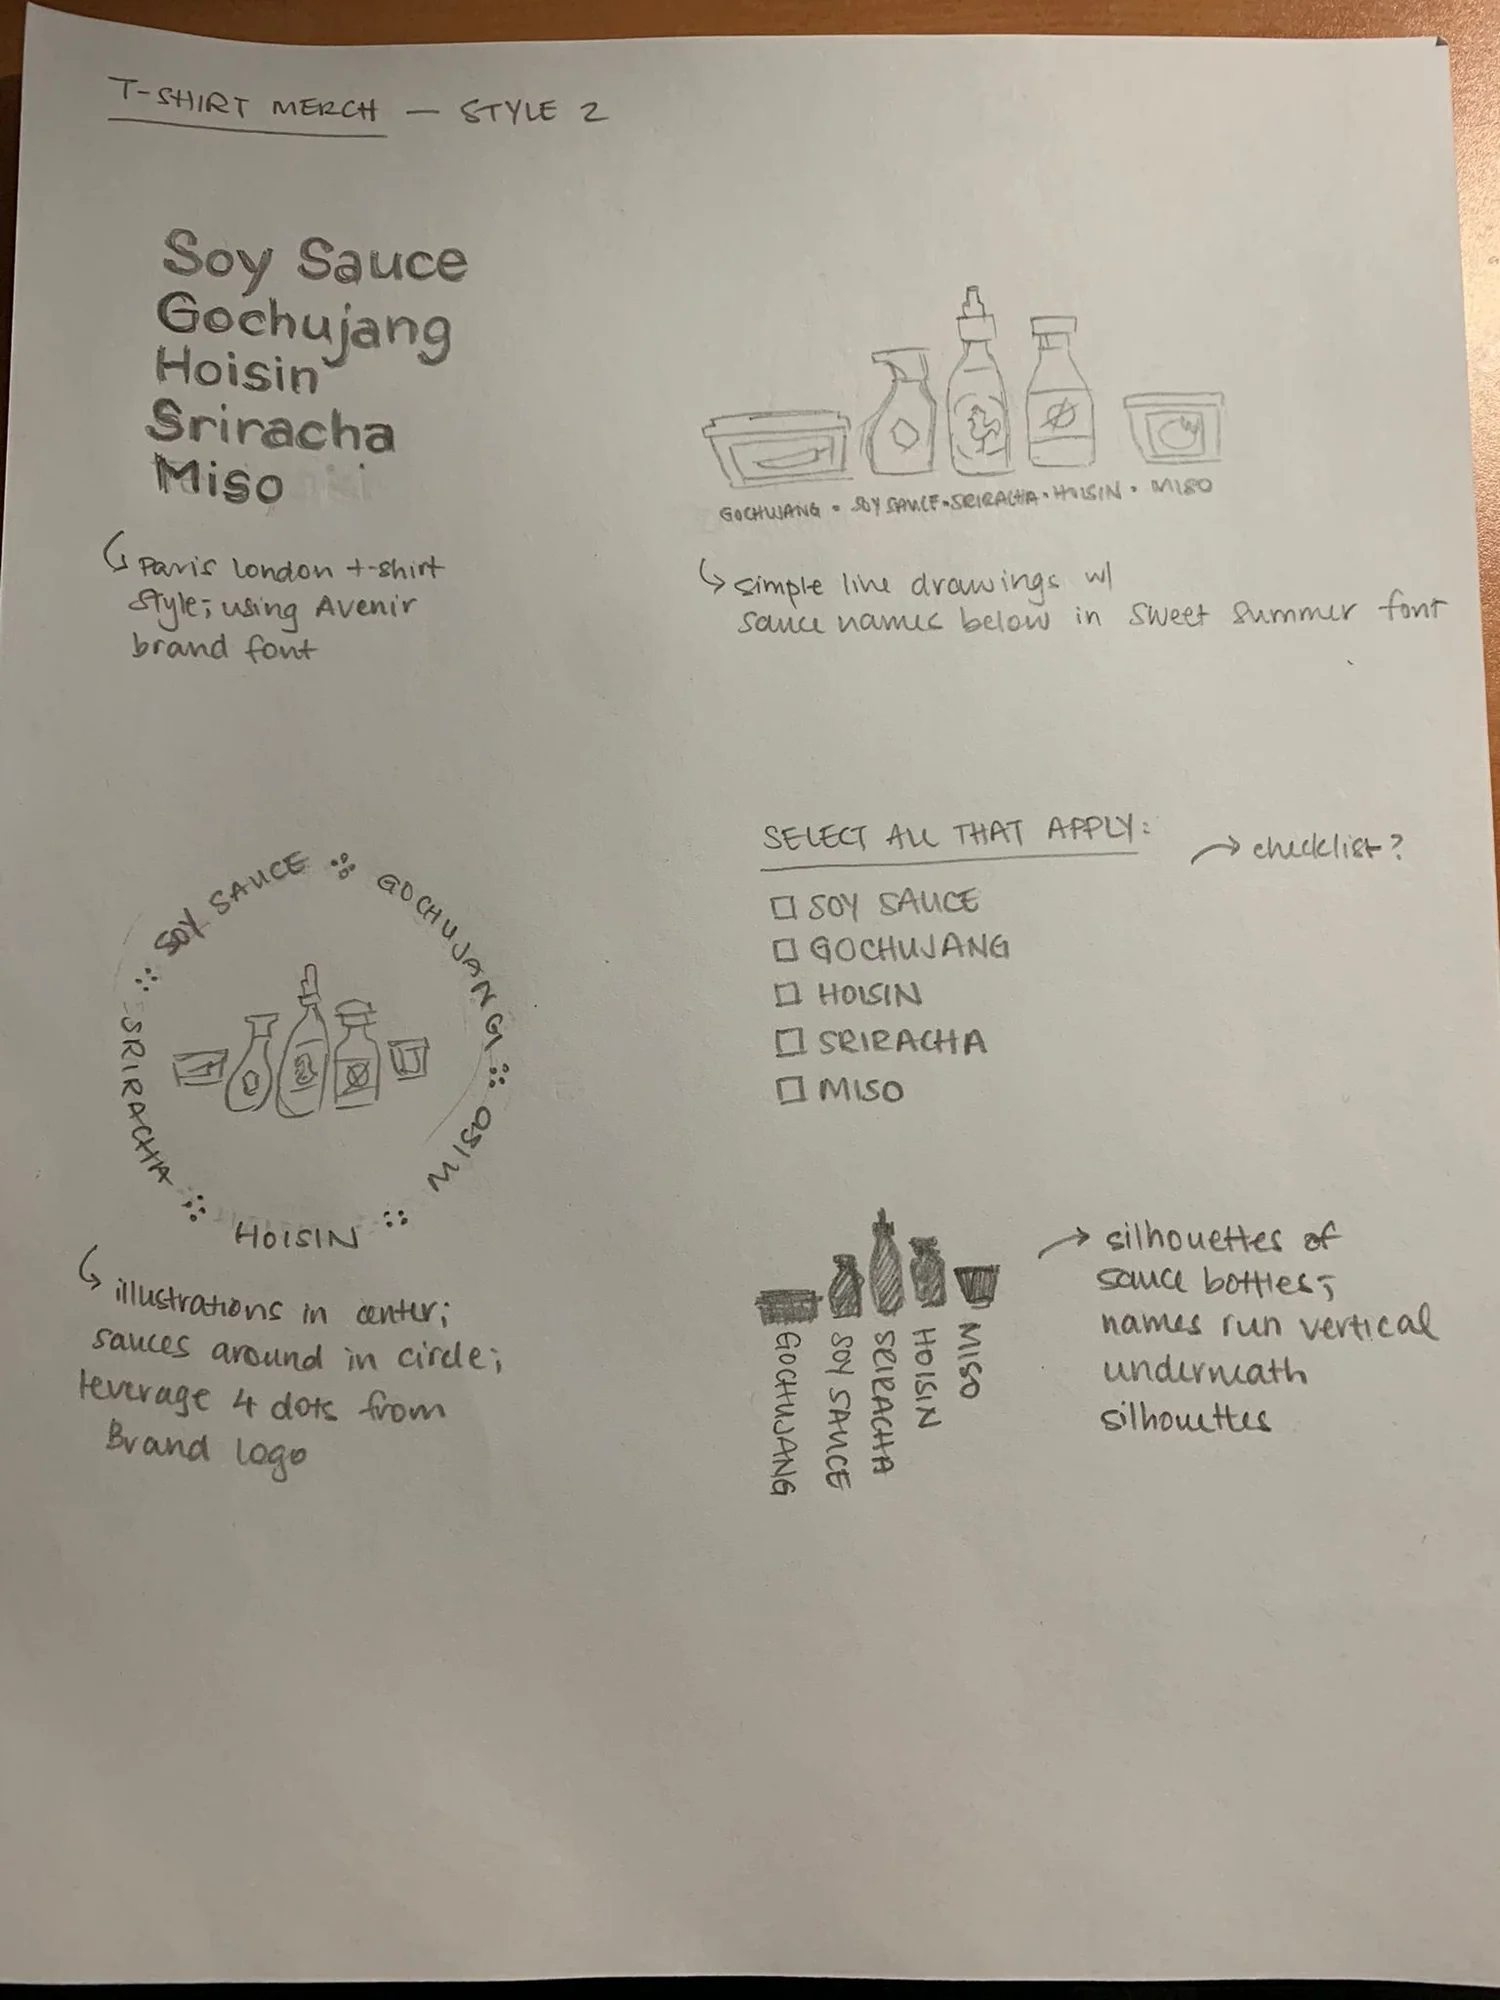 T-SHIRT MERCH — STYLE 2
Soy Sauce
Gochujang
Hoisin
Sriracha
Miso
Paris London t-shirt
style; using Avenir
brand font
GOCHUJANG • SOY SAUCE • SRIRACHA • HOISIN • MISO
simple line drawings w/
sauce names below in sweet summer font
SOY SAUCE
GOCHUJANG
MISO
HOISIN
SRIRACHA
illustrations in center;
sauces around in circle;
leverage 4 dots from
Brand logo
SELECT ALL THAT APPLY:
checklist?
☐ SOY SAUCE
☐ GOCHUJANG
☐ HOISIN
☐ SRIRACHA
☐ MISO
GOCHUJANG
SOY SAUCE
SRIRACHA
HOISIN
MISO
silhouettes of
sauce bottles;
names run vertical
underneath
silhouettes